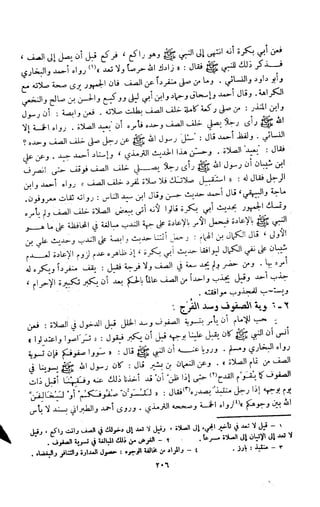 فعن أبي بكرة أنه انتهى إلى النبي ﷺ وهو راكع ، فركع قبل أن يصل إلى الصف ،
فذكر ذلك للنبي ﷺ فقال : « زادك الله حرصاً ولا تعد »(١) رواه أحمد والبخاري
وأبو داود والنسائي . وما من صلى منفرداً عن الصف فان الجمهور يرى صحة صلاته مع
الكراهة . وقال أحمد وإسحاق وحماد وابن أبي ليلى ووكيع والحسن بن صالح والنخعي
وابن المنذر : من صلى ركعة كاملة خلف الصف بطلت صلاته . فعن وابصة : أن رسول
الله ﷺ رأى رجلاً يصلي خلف الصف وحده فأمره أن يعيد الصلاة . رواه الخمسة إلا
النسائي . ولفظ أحمد قال : سئل رسول الله ﷺ عن رجل صلى خلف الصف وحده ؟
فقال : يعيد الصلاة . وحسن هذا الحديث الترمذي ، وإسناد أحمد جيد . وعن علي
ابن شيبان أن رسول الله ﷺ رأى رجلاً يصلي خلف الصف فوقف حتى انصرف
الرجل فقال له : « استقبل صلاتك فلا صلاة لفرد خلف الصف » رواه أحمد وابن
ماجة والبيهقي ، قال أحمد حديث حسن وقال ابن سيد الناس : رواته ثقات معروفون .
وتمسك الجمهور بحديث أبي بكرة قالوا لأنه أتى ببعض الصلاة خلف الصف ولم يأمره
النبي ﷺ بالإعادة فيحمل الأمر بالإعادة على جهة الندب مبالغة في المحافظة على ما هو
الأولى . قال الكمال بن الهمام : وحمل أئمتنا حديث وابصة على الندب وحديث علي بن
شيبان على نفي الكمال ليوافقا حديث أبي بكرة ، إذ ظاهره عدم لزوم الإعادة لعدم
أمره بها . ومن حضر ولم يجد سعة في الصف ولا فرجة فقيل : يقف منفرداً ويكره له
جذب أحد وقيل يجذب واحداً من الصف عالماً بالحكم بعد أن يكبر تكبيرة الإحرام ،
ويستحب للمجذوب موافقته .
تسوية الصفوف وسد الفرج :
يستحب للإمام أن يأمر بتسوية الصفوف وسد الخلل قبل الدخول في الصلاة : فعن
أنس أن النبي ﷺ كان يقبل علينا بوجهه قبل أن يكبر فيقول : « تراصوا واعتدلوا »
رواه البخاري ومسلم . ورويا عنه أن النبي ﷺ قال : « سووا صفوفكم فإن تسوية
الصف من تمام الصلاة » . وعن النعمان بن بشير قال : كان رسول الله ﷺ يسوينا في
الصفوف كما يقوم القدح(٢) حتى إذا ظن أن قد أخذنا ذلك عنه وفقهنا أقبل ذات
يوم بوجهه إذا رجل منتبذ بصدره(٣) فقال : « لتسون صفوفكم أو ليخالفن
الله بين وجوهكم »(٤) رواه الخمسة وصححه الترمذي . وروى أحمد والطبراني بسند لا بأس
١ - قيل لا تعد في تأخير المجيء إلى الصلاة ، وقيل لا تعد إلى دخولك في الصف وانت راكع ، وقيل
لا تعد إلى الإتيان إلى الصلاة مسرعاً .
٢ - الغرض من ذلك المبالغة في تسوية الصفوف .
٣ - منتبذ : بارز .
٤ - والمراد من مخالفة الوجوه : حصول العداوة والتنافر والبغضاء .
٢٠٦